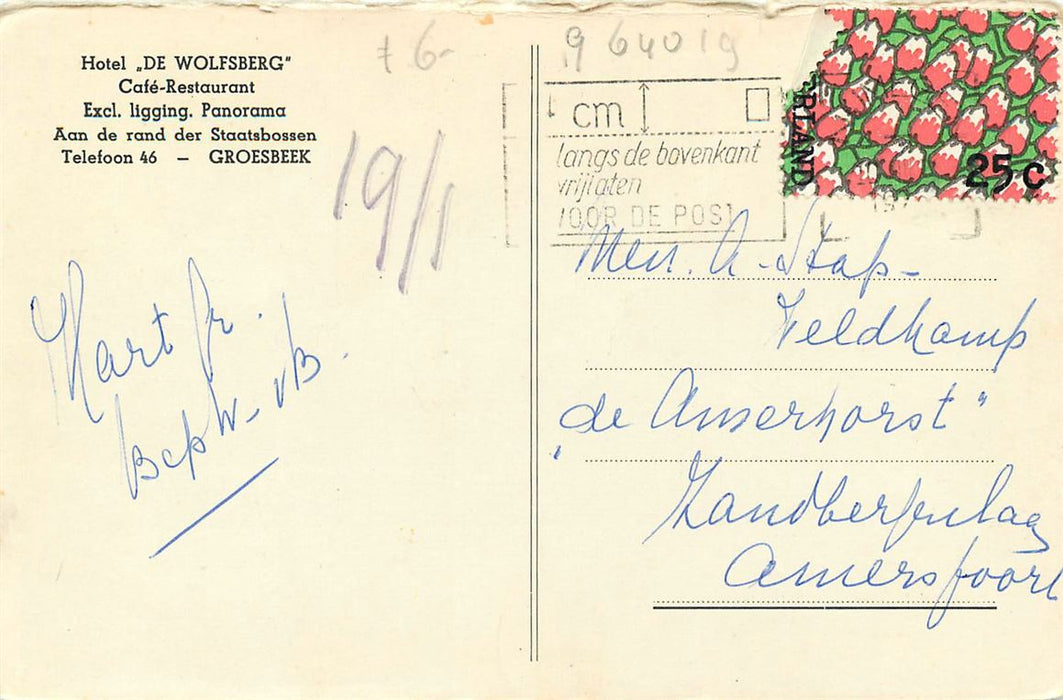 Hotel „DE WOLFSBERG"
Café-Restaurant
Excl. ligging. Panorama
Aan de rand der Staatsbossen
Telefoon 46 — GROESBEEK
19/1
Hart. gr.
Bep W. vB.
6-
964019
cm
langs de bovenkant
vrijlaten
VOOR DE POST
RLAND
25 c
Mevr. A. Stap-
Veldkamp
„de Amerhorst"
Zandbergenlaan
Amersfoort